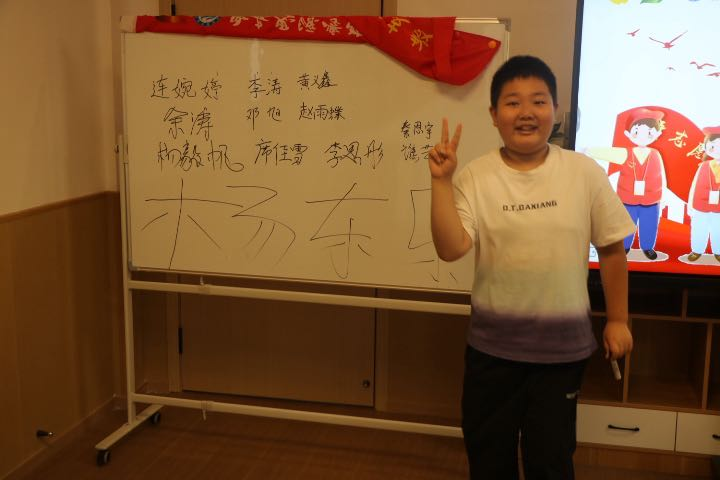 连婉婷 李涛 黄义鑫
余涛 邓旭 赵雨蝶
秦恩宇
杨毅帆 席佳雪 李思彤
杨东
D.T.DAXIANG
志愿